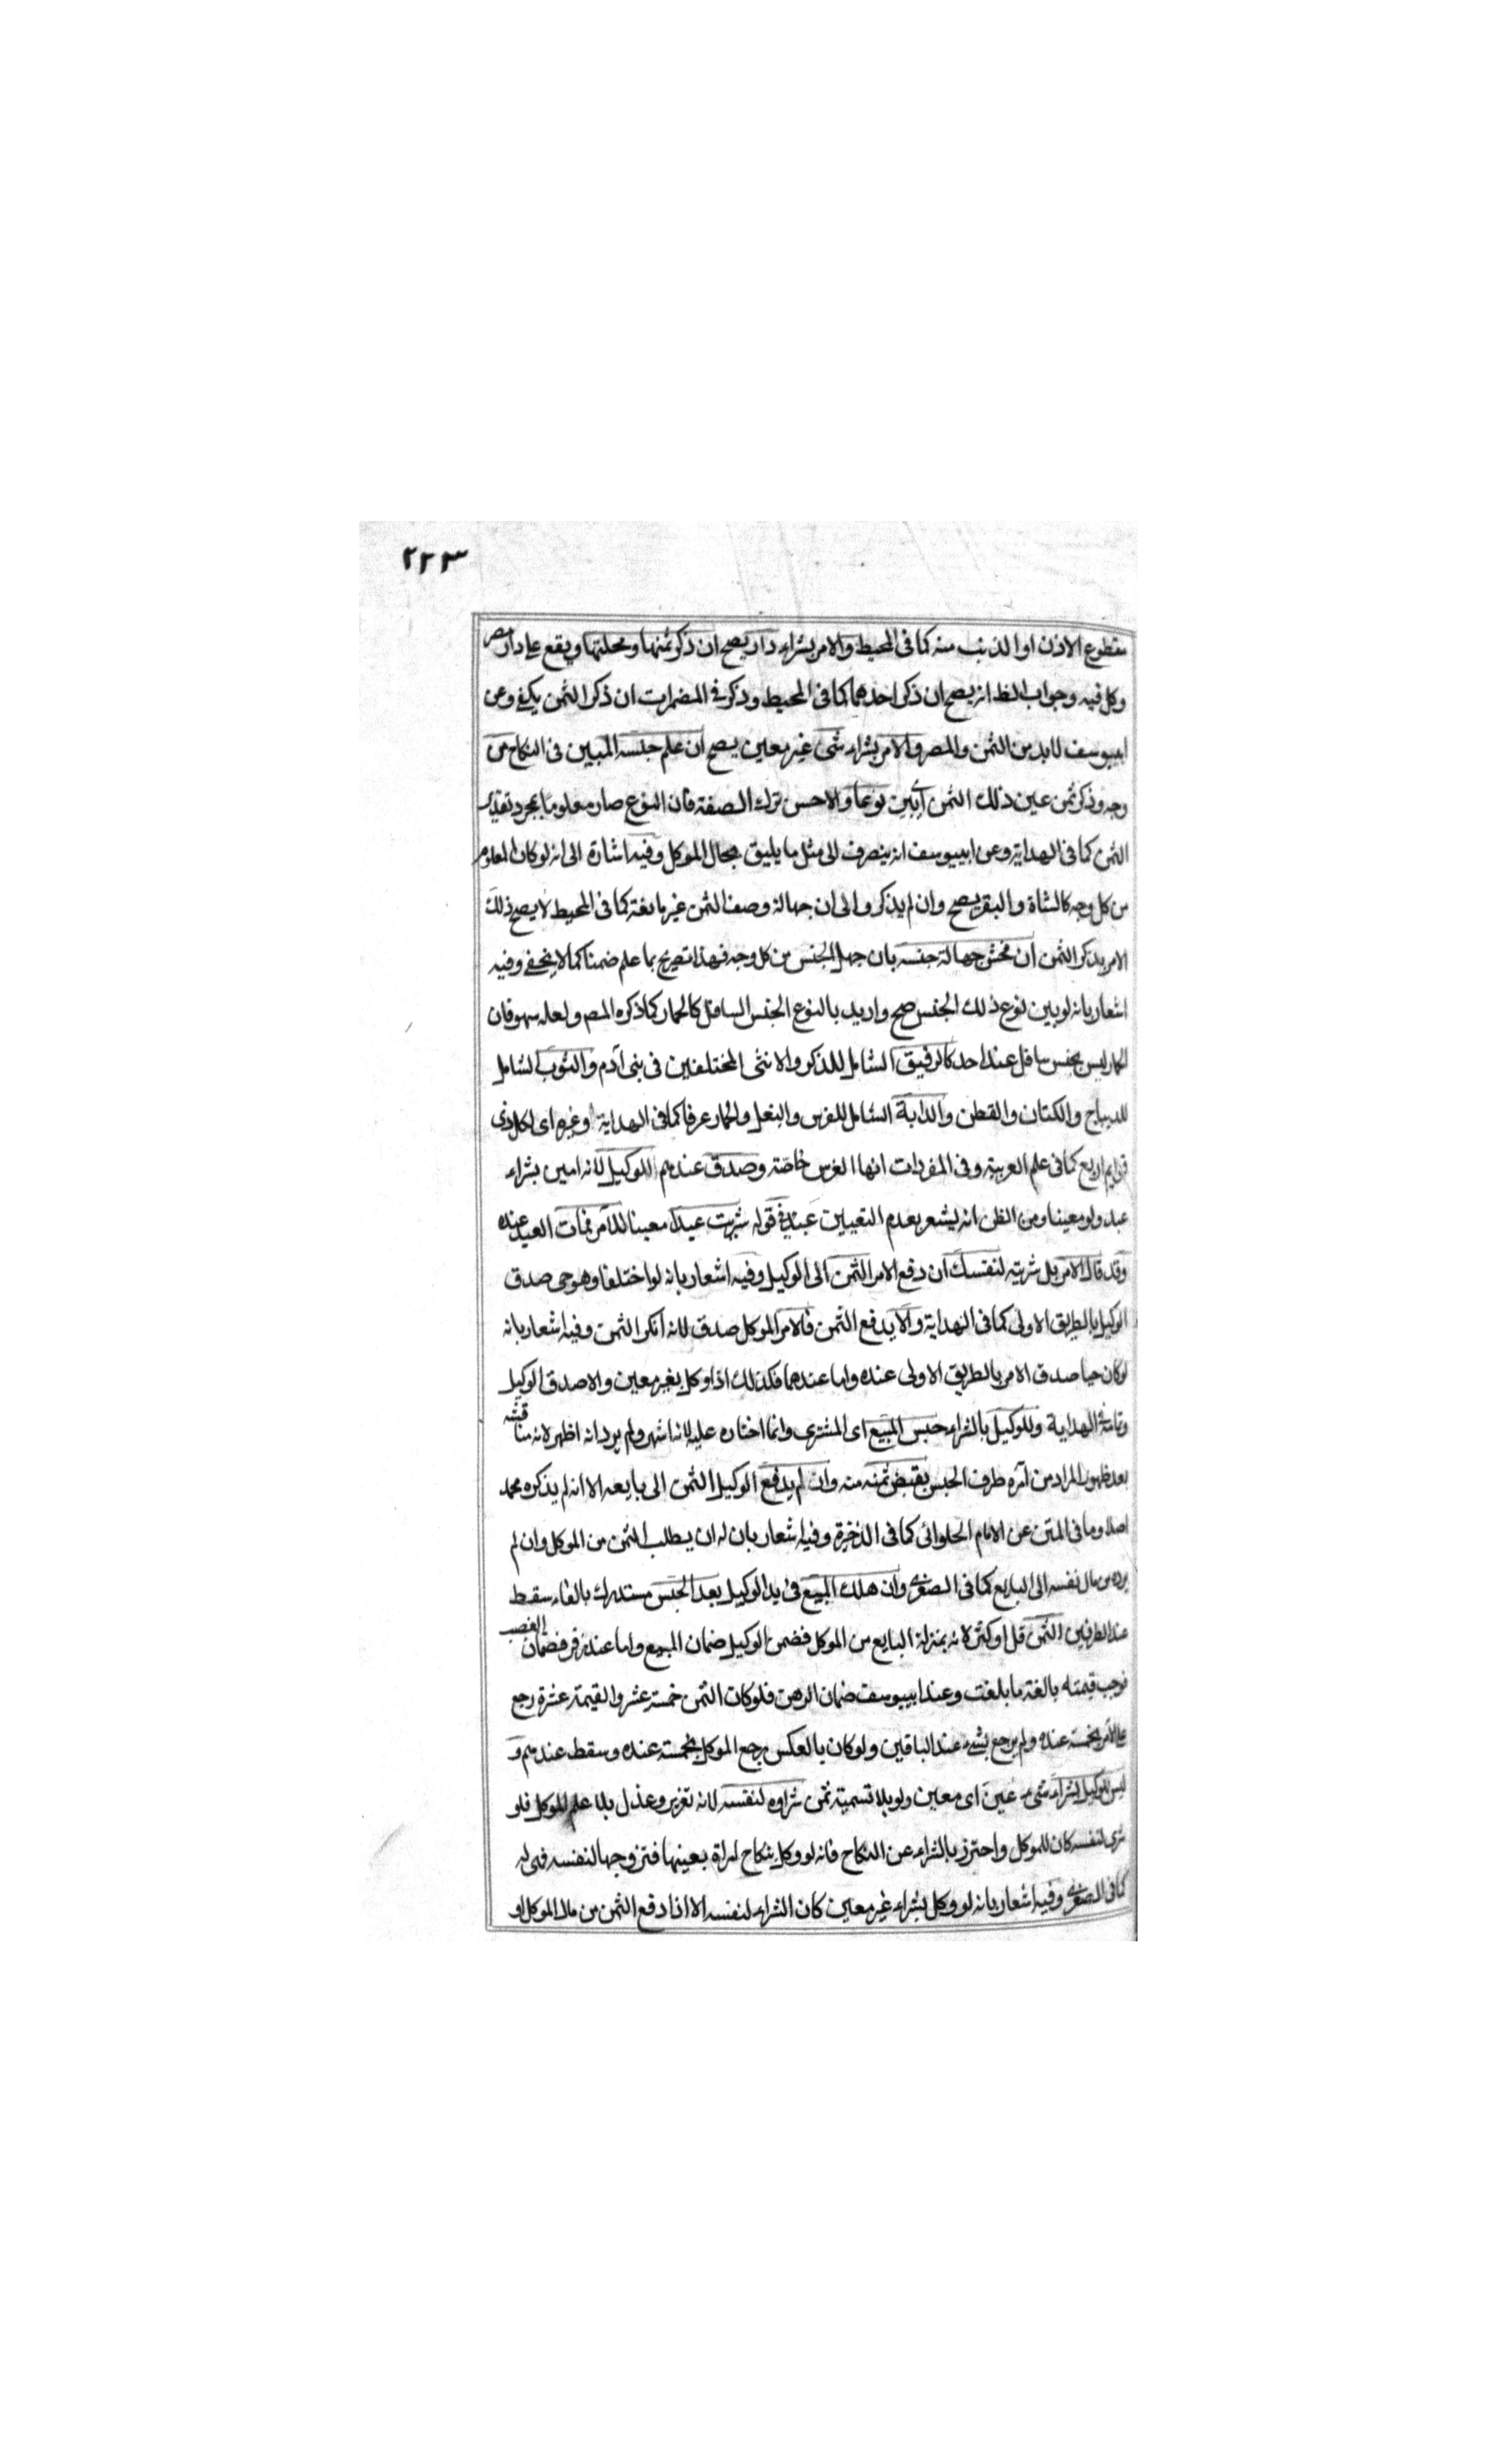 ٢٢٣
مقطوع الاذن او الذنب منه كما فى المحيط والامر بشراء دار يصح ان ذكر ثمنها ومحلتها ويقع على دار مصر
وكل فيه وجواب الظ انه يصح ان ذكر احدهما كما فى المحيط وذكر فى المضمرات ان ذكر الثمن يكفى وعن
ابيوسف لابد من الثمن والمصر والامر بشراء شئ غير معين يصح ان علم جنسه المبين فى النكاح من
وجه وذكر ثمن عين ذلك الثمن اى يبين نوعا والاحسن ترك الصفة فان النوع صار معلوما بمجرد تقدير
الثمن كما فى الهداية وعن ابييوسف انه ينصرف الى مثل ما يليق بحال الموكل وفيه اشارة الى انه لو كان المعلوم
من كل وجه كالشاة والبقر يصح وان لم يذكر والى ان جهالة وصف الثمن غير مانعة كما فى المحيط لا يصح ذلك
الامر بذكر الثمن ان فحش جهالة جنسه بان جهل الجنس من كل وجه فهذا تصريح بما علم ضمنا كما لا يخفى وفيه
اشعار بانه لو بين نوع ذلك الجنس صح واريد بالنوع الجنس السافل كالحمار كما ذكره المصـ ولعله سهو فان
الحمار ليس بجنس سافل عند احد كالرقيق الشامل للذكر والانثى المختلفين فى بنى آدم والثوب الشامل
للديباج والكتان والقطن والدابة الشامل للفرس والبغل والحمار عرفا كما فى الهداية وغيره اى لكل ذى
قوايم اربع كما فى علم العربية وفى المفردات انها الفرس خاصة وصدق عندهم الوكيل لانه امين بشراء
عبد ولو معينا ومن الظن انه ليشعر بعدم التعيين عبد فى قوله شريت عبدا معينا للآمر فمات العبد عنده
وقد قال الآمر بل شريته لنفسك ان دفع الامر الثمن الى الوكيل وفيه اشعار بانه لو اختلفا وهو حى صدق
الوكيل بالطريق الاولى كما فى الهداية والا يدفع الثمن فالامر الموكل صدق لانه انكر الثمن وفيه اشعار بانه
لو كان حيا صدق الامر بالطريق الاولى عنده واما عندهما فكذلك اذا وكل بغير معين والا صدق الوكيل
وتمامه فى الهداية وللوكيل بالشراء حبس المبيع اى المشترى وانما اختاره عليه لانه اشهر ولم يرد انه اظهر لانه مناقشة
بعد ظهور المراد من آمره ظرف الحبس بقبض ثمنه منه وان لم يدفع الوكيل الثمن الى بايعه الا انه لم يذكره محمد
اصلا وما فى المتن عن الامام الحلوائى كما فى الذخيرة وفيه اشعار بان له ان يطلب الثمن من الموكل وان لم
يرده من مال نفسه الى البايع كما فى الصغرى وان هلك المبيع فى يد الوكيل بعد الحبس مستدرك بالفاء سقط
عند الطرفين الثمن قل او كثر لانه بمنزلة البايع من الموكل فضمن الوكيل ضمان المبيع واما عند زفر فضمان الغصب
فوجب قيمته بالغة ما بلغت وعند ابييوسف ضمان الرهن فلو كان الثمن خمسة عشر والقيمة عشرة رجع
على الآمر بخمسة عنده ولم يرجع بشئ عند الباقين ولو كان بالعكس رجع الموكل بخمسة عنده وسقط عندهم و
ليس للوكيل بشراء شئ عين اى معين ولو بلا تسمية ثمن شراوه لنفسه لانه تغرير وعذل بلا علم الموكل فلو
شرى لنفسه كان للموكل واحترز بالشراء عن النكاح فانه لو وكل بنكاح امراة بعينها فتزوجها لنفسه فهى له
كما فى الصغرى وفيه اشعار بانه لو وكل بشراء غير معين كان الشراء لنفسه الا اذا دفع الثمن من مال الموكل او